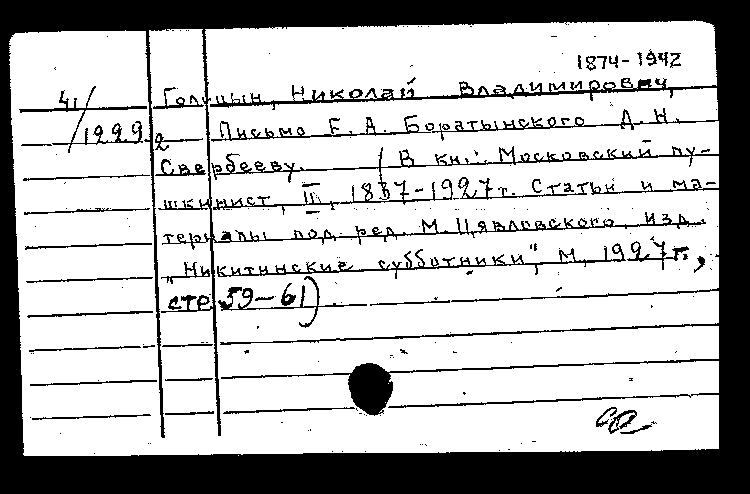 1874-1942
41/12292
Голицын, Николай Владимирович,
Письмо Е. А. Боратынского Д. Н.
Свербееву. (В кн.: Московский пу-
шкинист, II, 1837-1927 г. Статьи и ма-
териалы под ред. М. Цявловского, изд.
„Никитинские субботники", М, 1927 г.,
стр. 59-61)